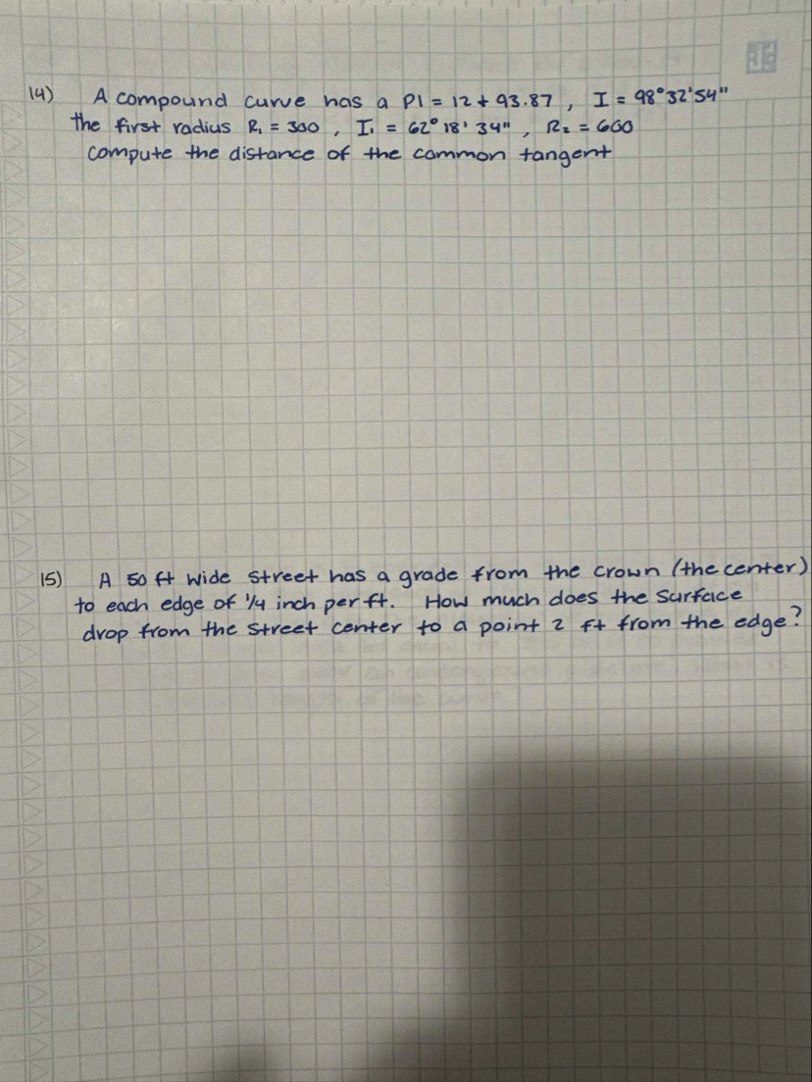 14) A compound curve has a PI = 12 + 93.87 , I = 98°32'54"
the first radius R₁ = 300 , I₁ = 62° 18' 34" , R₂ = 600
compute the distance of the common tangent
15) A 50 ft wide street has a grade from the crown (the center)
to each edge of 1/4 inch per ft. How much does the surface
drop from the street center to a point 2 ft from the edge?